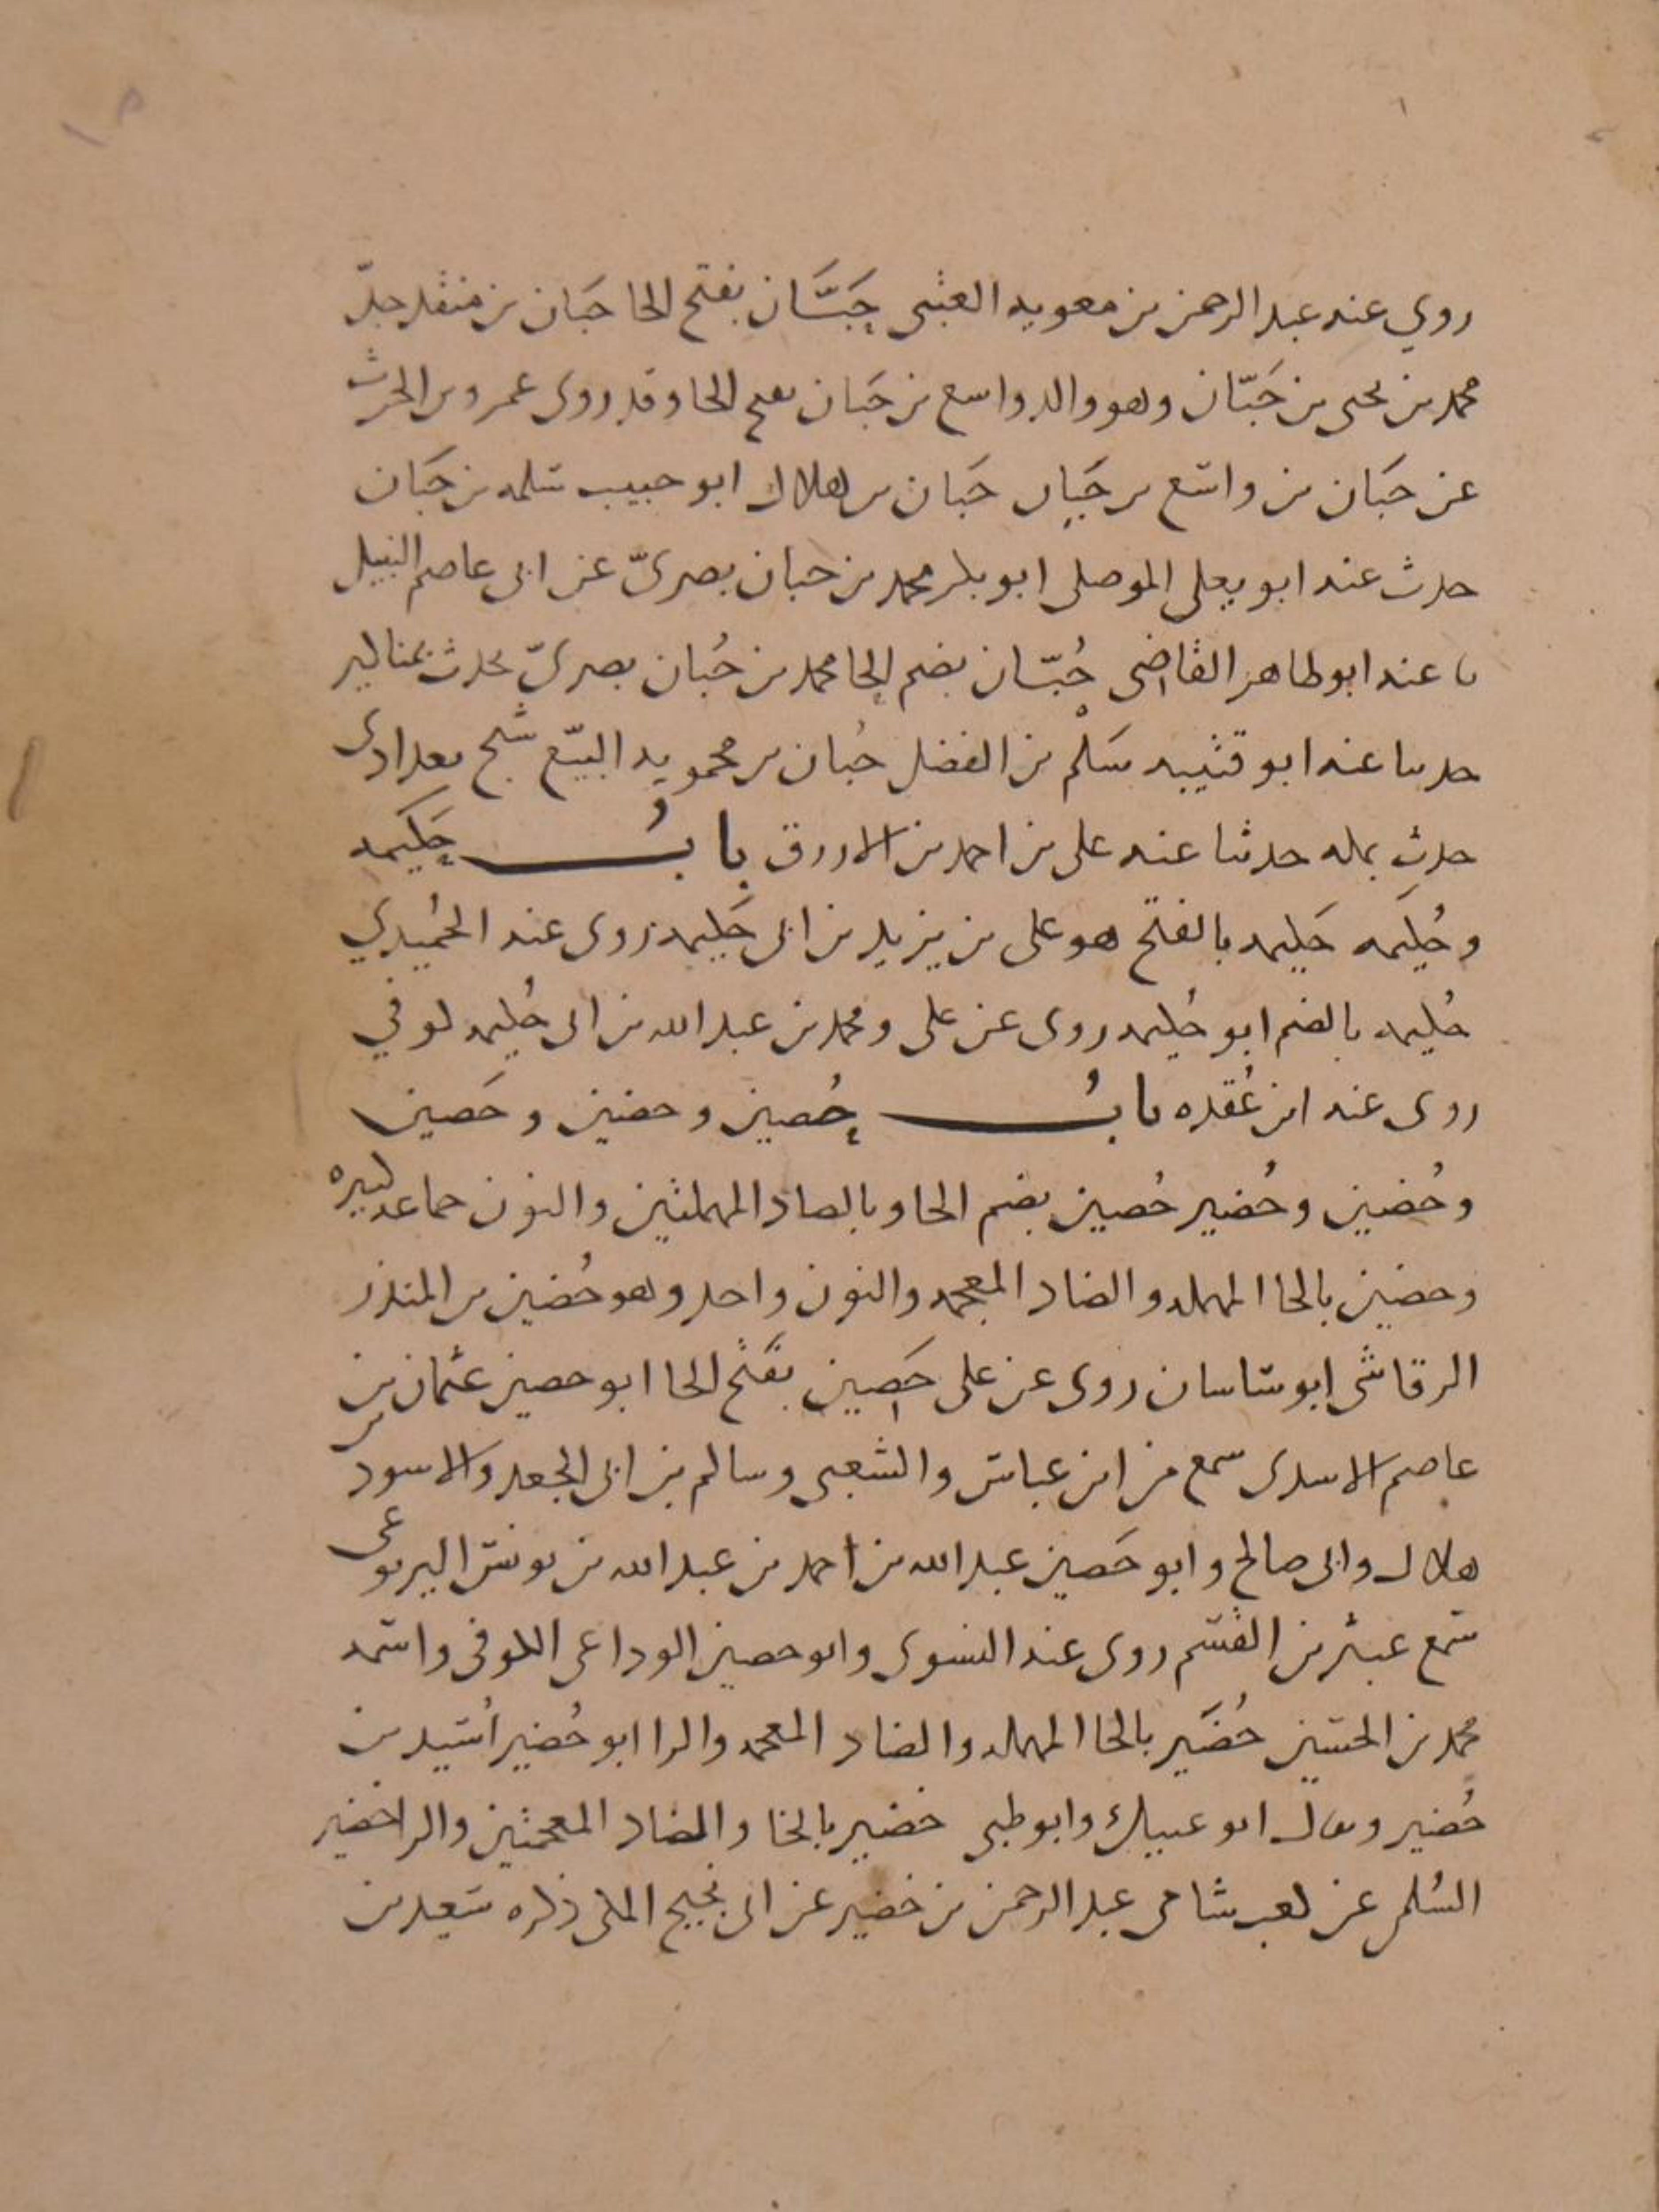 روي عنه عبد الرحمن بن معويه العتبى حَبَّان بفتح الحا حَبان بن منقذ جدّ
محمد بن يحيى بن حَبّان وهو والد واسع بن حَبان بفتح الحا وقد روى عمرو بن الحرث
عن حَبان بن واسع بن حَبان حَبان بن هلال ابو حبيب سلمه بن حَبان
حدث عنه ابو يعلى الموصلى ابو بكر محمد بن حبان بصرىّ عن ابى عاصم النبيل
نا عنه ابو طاهر القاضى حُبّان بضم الحا محمد بن حُبان بصرىّ يحدث بمناكير
حدثنا عنه ابو قتيبه سَلْم بن الفضل حُبان بن محمويه البيّع شيخ بغدادى
حدث بمكه حدثنا عنه على بن احمد بن الازرق بابُ حَكيمه
وحُكيمه حَكيمه بالفتح هو على بن يزيد بن ابى حَكيمه روى عنه الحُميدي
حُكيمه بالضم ابو حُكيمه روى عن على ومحمد بن عبد الله بن ابى حُكيمه كوفي
روى عنه ابن عُقده بابُ حُصين وحضين وحَصين
وحُضين وحُضير حُصين بضم الحا وبالصاد المهملتين والنون جماعه كبيره
وحضين بالحا المهمله والضاد المعجمه والنون واحد وهو حُضين بن المنذر
الرقاشى ابو ساسان روى عن على حَصين بفتح الحا ابو حصين عثمان بن
عاصم الاسدى سمع من ابن عباس والشعبى وسالم بن ابى الجعد والاسود بن
هلال وابى صالح وابو حَصين عبد الله بن احمد بن عبد الله بن يونس اليربوعى
سمع عبثر بن القسم روى عنه النسوى وابو حصين الوداعى الكوفى واسمه
محمد بن الحسين حُضَير بالحا المهمله والضاد المعجمه والرا ابو حُضير اُسَيد بن
حُضير ويقال ابو عتيك وابو طبى خضير بالخا والضاد المعجمتين والرا خضير
السُلمى عن كعب شامى عبد الرحمن بن خضير عن ابى نجيح المكى ذكره سَعيد بن